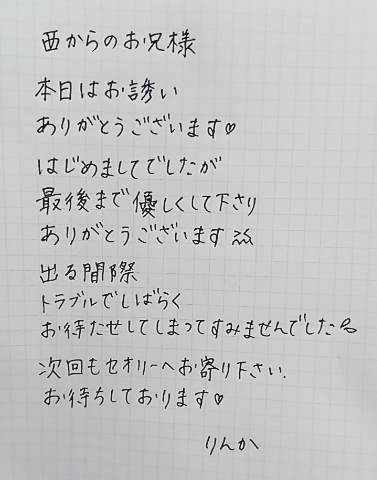 西からのお兄様
本日はお誘い
ありがとうございます♡
はじめましてでしたが
最後まで優しくして下さり
ありがとうございます
出る間際
トラブルでしばらく
お待たせしてしまってすみませんでした
次回もセオリーへお寄り下さい.
お待ちしております♡
りんか